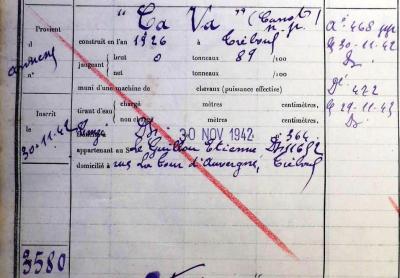 "Ca Va" (Canot)
n.p.
Provient
d
annexe
n°
construit en l'an 1926 à Tréboul
jaugeant
brut 0 tonneaux 89 /100
net tonneaux /100
muni d'une machine de chevaux (puissance effective)
tirant d'eau
chargé mètres centimètres,
non chargé mètres centimètres,
Inscrit
le
30-11-42
30 NOV 1942
n° 364
appartenant au Sr Le Guillou Etienne
domicilié à rue La Tour d'Auvergne, Tréboul
3580
a° 468
30-11-42
D°
472
29-11-43